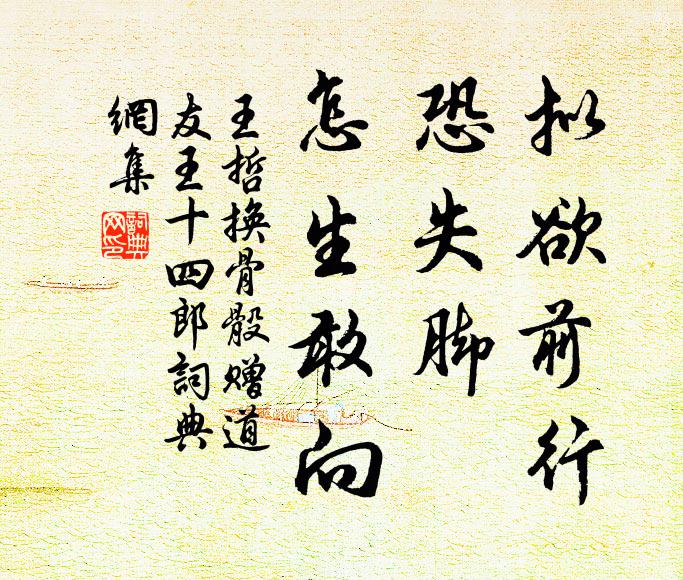 拟欲前行
恐失脚
怎生敢向
王哲换骨骰赠道
友王十四郎詞典
網集
詞典
网印